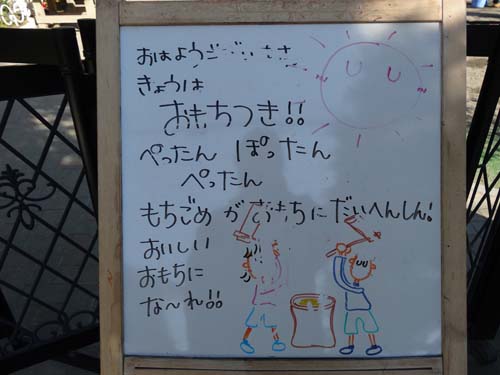 おはようございます
きょうは
おもちつき!!
ぺったん ぽったん
ぺったん
もちごめ が おもちに だいへんしん!
おいしい
おもちに
な〜れ!!